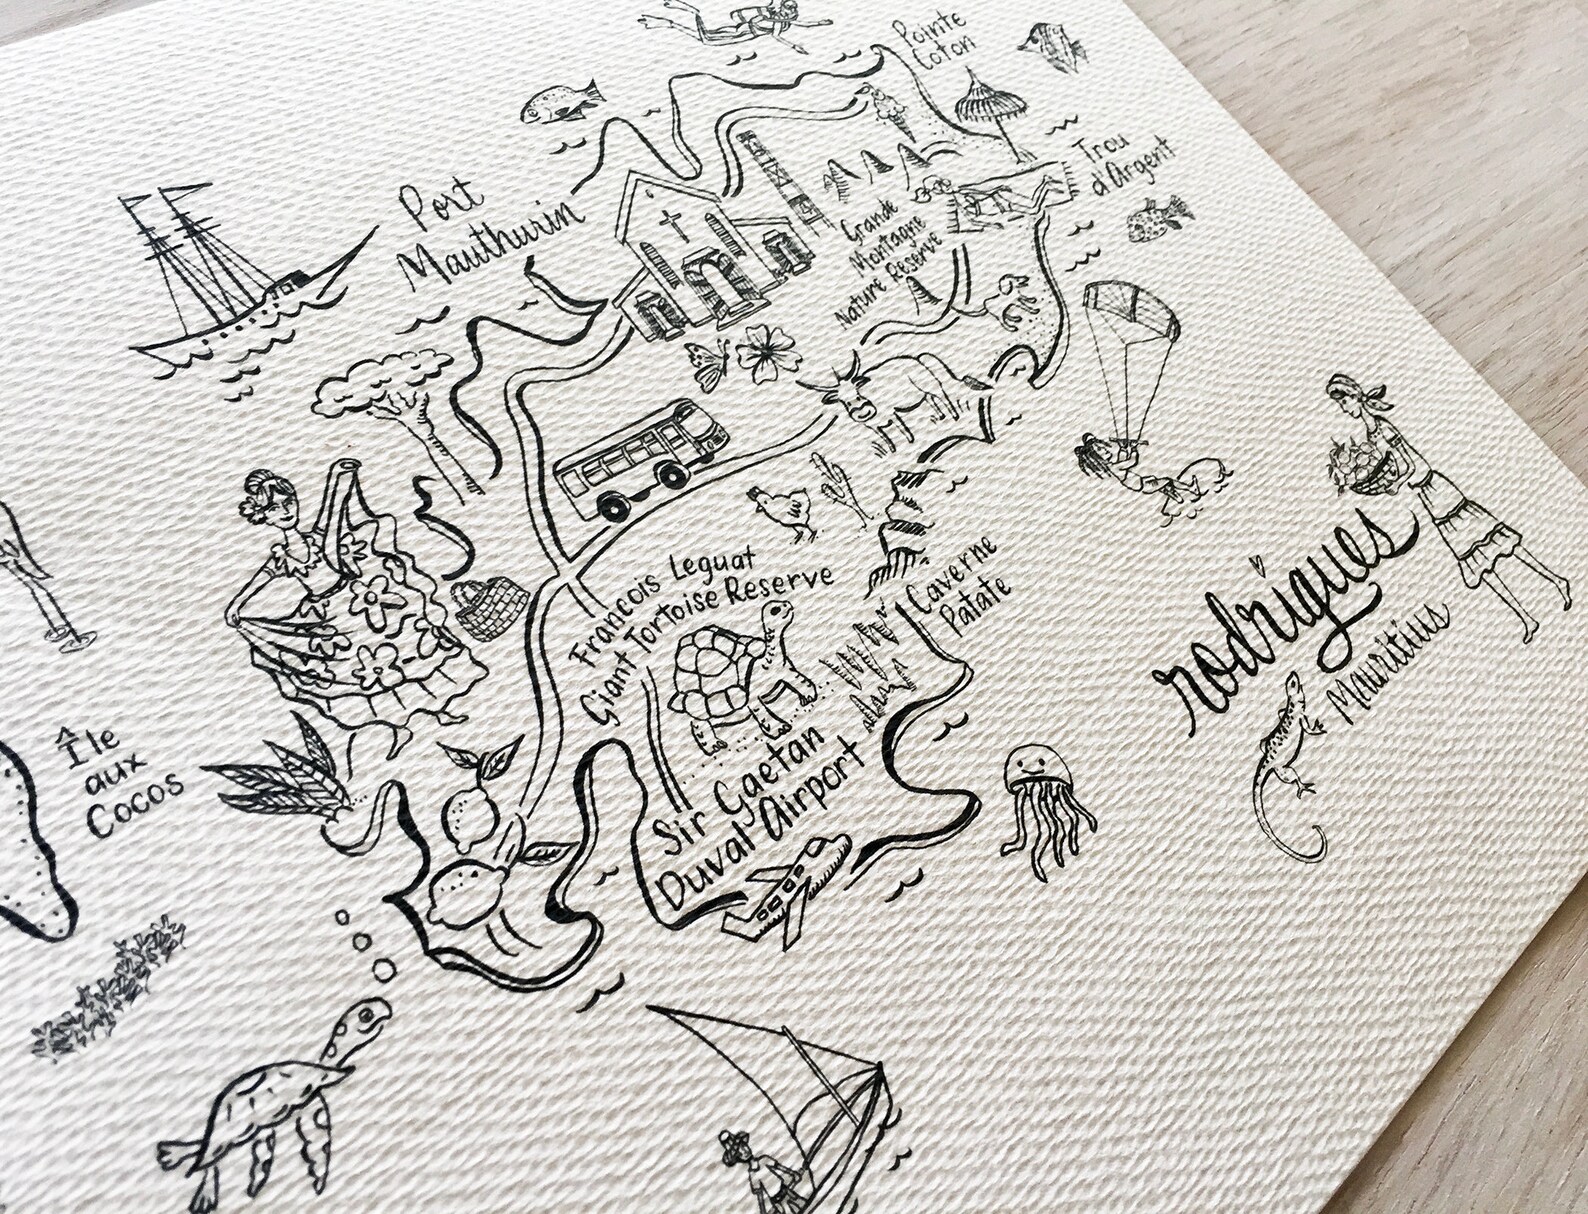 Pointe
Coton
Trou
d'Argent
Port
Mauthurin
Grande
Montagne
Nature Reserve
Francois Leguat
Giant Tortoise Reserve
Caverne
Patate
Sir Gaetan
Duval Airport
Île
aux
Cocos
rodrigues
Mauritius